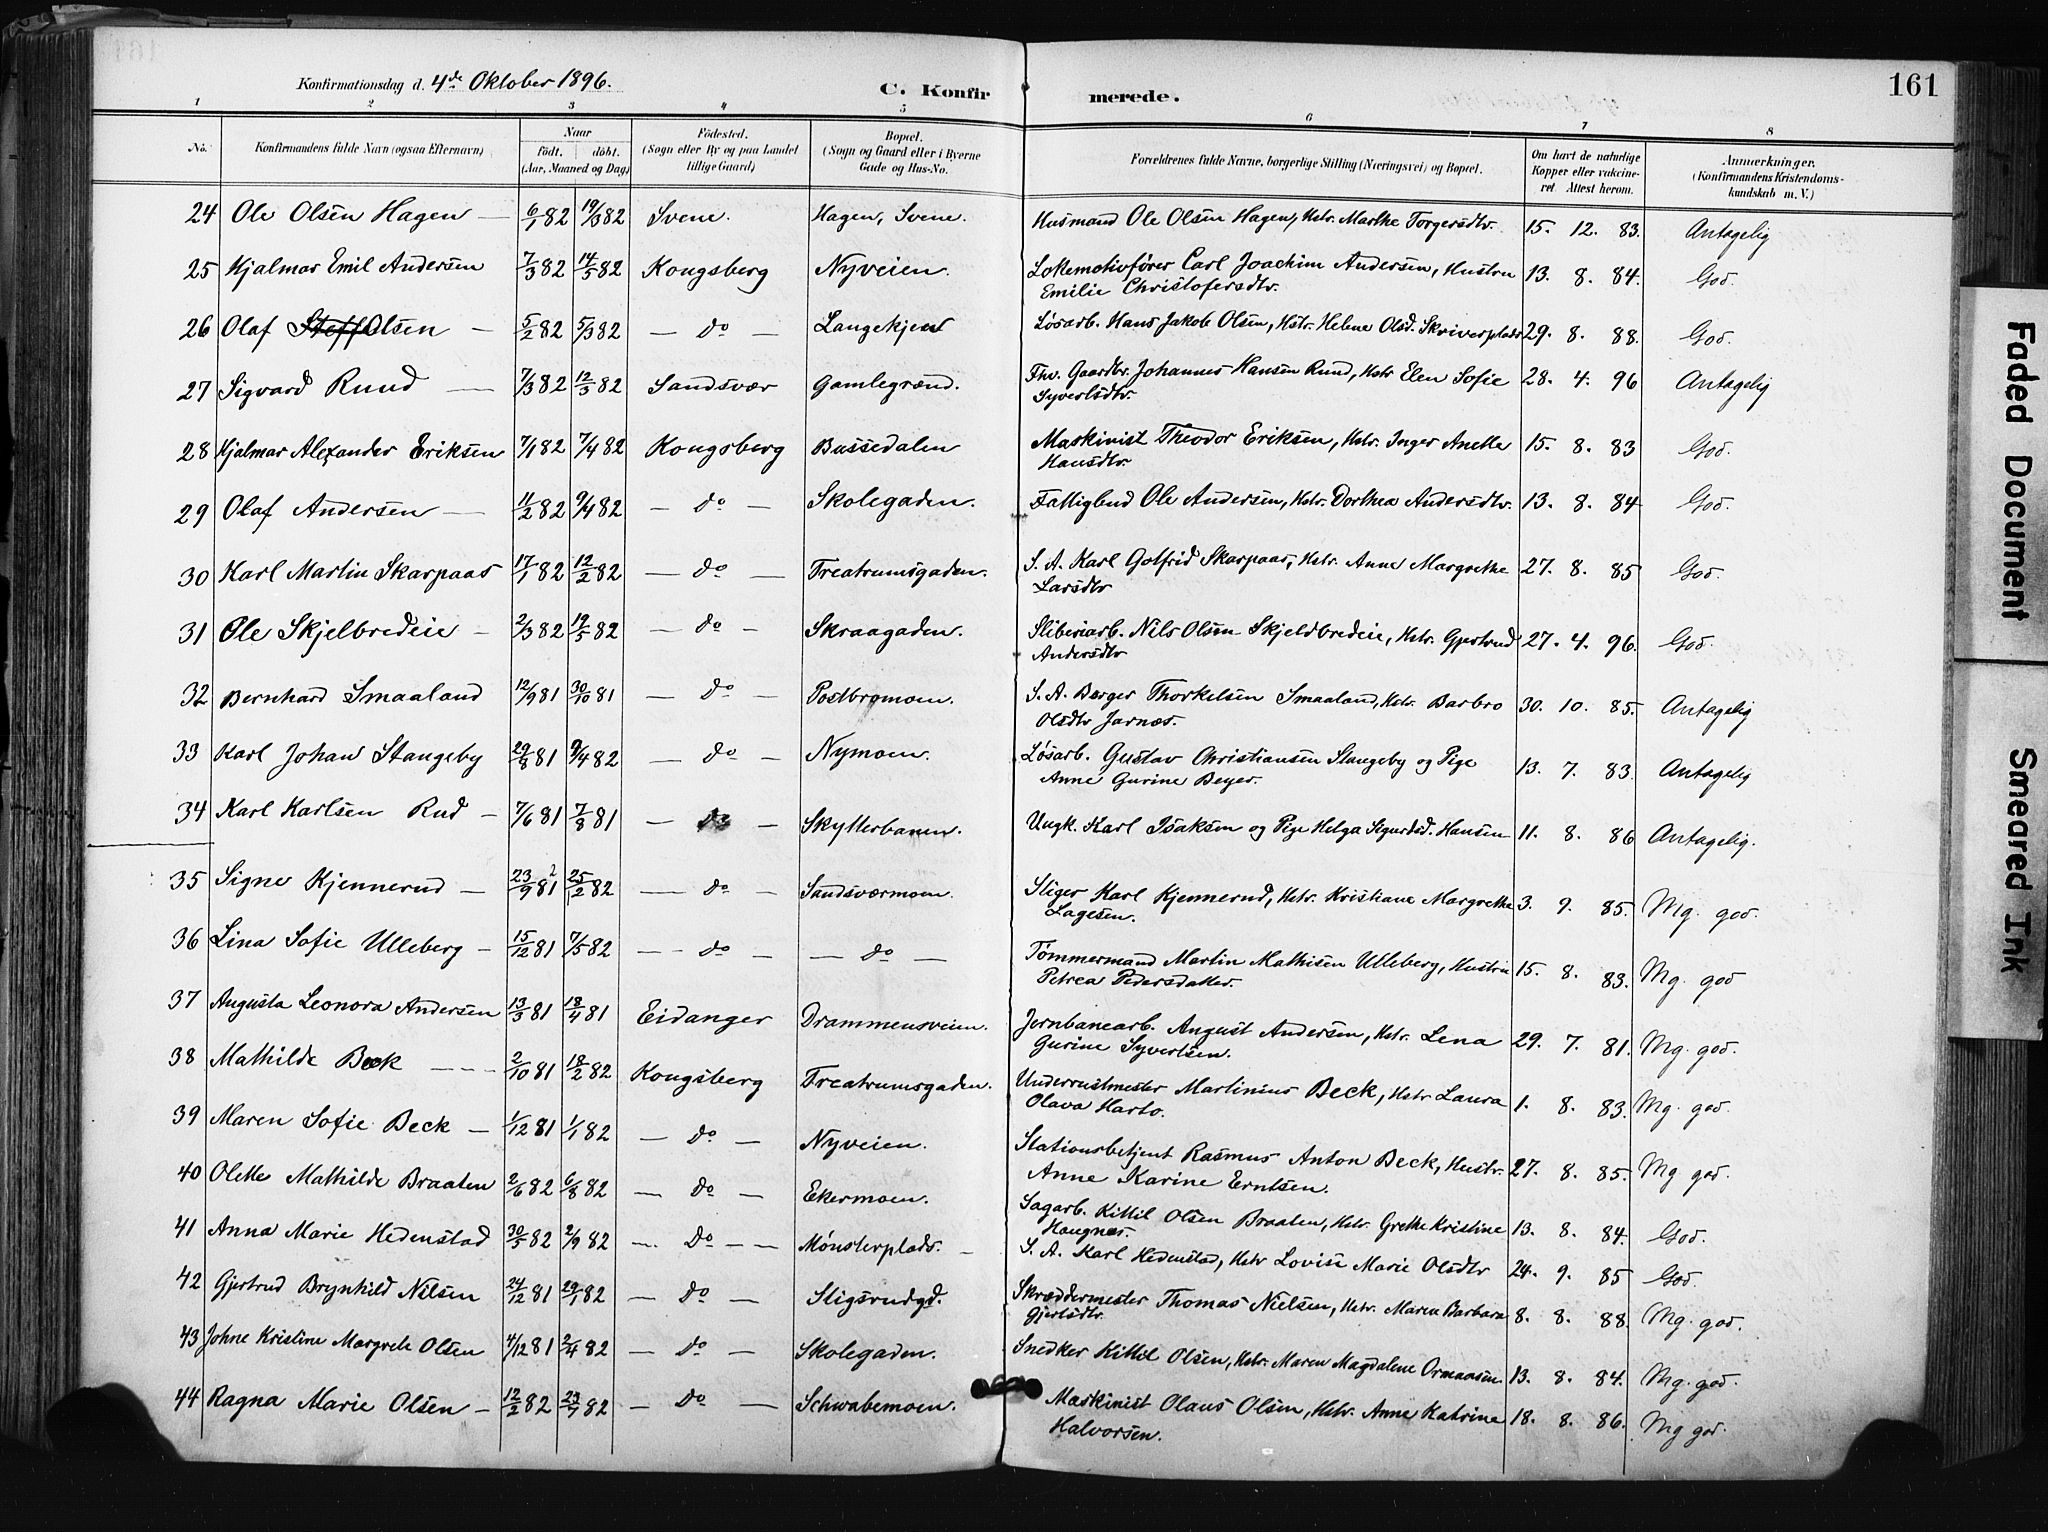 Konfirmationsdag d. 4de Oktober 1896. C. Konfirmerede. 161
1 2 3 4 5 6 7 8
No. Konfirmandens fulde Navn (ogsaa Efternavn) Naar født. døbt. (Aar, Maaned og Dag) Födested. (Sogn eller By og paa Landet tillige Gaard) Bopæl. (Sogn og Gaard eller i Byerne Gade og Hus-No. Forældrenes fulde Navne, borgerlige Stilling (Næringsvei) og Bopæl. Om havt de naturlige Kopper eller vaccineret. Attest herom. Anmærkninger. (Konfirmandens Kristendomskundskab m. V.)
24 Ole Olsen Hagen — 6/1 82 19/3 82 Svene. Hagen, Svene. Husmand Ole Olsen Hagen, Hstr. Marthe Torgersdtr. 15. 12. 83. Antagelig
25 Hjalmar Emil Andersen 7/3 82 14/5 82 Kongsberg Nyveien. Lokemotivfører Carl Joachim Andersen, Hustru 13. 8. 84. God.
Emilie Christofersdtr.
26 Olaf Olsen — 5/2 82 5/3 82 — do — Langekjen Løsarb. Hans Jakob Olsen, Hstr. Helene Olsd. Skriverplads 29. 8. 88. God.
27 Sigvard Ruud — 7/3 82 12/3 82 Sandsvær Gamlegrend. Fhv. Gaardbr. Johannes Hansen Ruud, Hstr Elen Sofie 28. 4. 96 Antagelig
Syvertsdtr.
28 Hjalmar Alexander Eriksen 7/1 82 7/4 82 Kongsberg Bussedalen Maskinist Theodor Eriksen, Hstr. Inger Anette 15. 8. 83 God.
Hansdtr.
29 Olaf Andersen — 11/2 82 9/4 82 — do — Skolegaden. Fattiglemd Ole Andersen, Hstr. Dorthea Andersdtr. 13. 8. 84 God.
30 Karl Martin Skarpaas 17/1 82 12/2 82 — do — Treatrumsgaden. S. A. Karl Gotfrid Skarpaas, Hstr. Anne Margrethe 27. 8. 85 God.
Larsdtr
31 Ole Skjelbredeie — 2/3 82 19/5 82 — do — Skraagaden. Sliberiarb. Nils Olsen Skjeldbredeie, Hstr. Gjertrud 27. 4. 96. God.
Andersdtr
32 Bernhard Smaaland 12/9 81 30/10 81 — do — Postbromoen. S. A. Berger Thorkelsen Smaaland, Hstr. Barbro 30. 10. 85. Antagelig
Olsdtr Jarnæs.
33 Karl Johan Stangeby 29/8 81 9/4 82 — do — Nymoen. Løsarb. Gustav Christiansen Stangeby og Pige 13. 7. 83. Antagelig
Anne Gurine Beyer.
34 Karl Karlsen Rud — 7/6 81 7/8 81 — do — Skytterbanen. Ungk. Karl Isaksen og Pige Helga Sigurdsd. Hansen 11. 8. 86 Antagelig.
35 Signe Kjennerud — 23/9 81 25/2 82 — do — Sandsværmoen. Stiger Karl Kjennerud, Hstr. Kristiane Margrethe 3. 9. 85. Mg. god.
Lagesen.
36 Lina Sofie Ulleberg — 15/12 81 7/5 82 — do — — do — Tømmermand Martin Mathisen Ulleberg, Hustru 15. 8. 83. Mg. god
Petrea Pedersdatter.
37 Augusta Leonora Andersen 13/3 81 18/4 81 Eidanger Drammensveien. Jernbanearb. August Andersen, Hstr. Lena 29. 7. 81. Mg. god.
Gurine Syvertsen.
38 Mathilde Beck — 2/10 81 18/2 82 Kongsberg Treatrumsgaden. Underrustmester Martinius Beck, Hstr Laura 1. 8. 83. Mg. god.
Olava Harto.
39 Maren Sofie Beck — 1/12 81 1/1 82 — do — Nyveien. Stationsbetjent Rasmus Anton Beck, Hustr. 27. 8. 85. Mg god.
Anne Karine Erntsen.
40 Olette Mathilde Braaten 2/6 82 6/8 82 — do — Ekermoen. Sagarb. Kittil Olsen Braaten, Hstr. Grethe Kristine 13. 8. 84. God.
Haugnæs.
41 Anna Marie Hedenstad 30/5 82 2/9 82 — Do — Mønsterplads. — S. A. Karl Hedenstad, Hstr Lovise Marie Olsdtr 24. 9. 85 God.
42 Gjertrud Brynhild Nilsen 24/12 81 29/1 82 — Do — Stigsrudgd. Skræddermester Thomas Nielsen, Hstr. Maren Barbara 8. 8. 88. Mg. god.
Gjertsdtr.
43 Johne Kristine Margrete Olsen 4/12 81 2/4 82 — do — Skolegaden. Snedker Kittil Olsen, Hstr. Maren Magdalene Ormaasen. 13. 8. 84. Mg. god.
44 Ragna Marie Olsen — 12/2 82 23/7 82 — do — Schwabemoen. Maskinist Olaus Olsen, Hstr. Anne Katrine 18. 8. 86. Mg god.
Halvorsen.
Faded Document
Smeared Ink